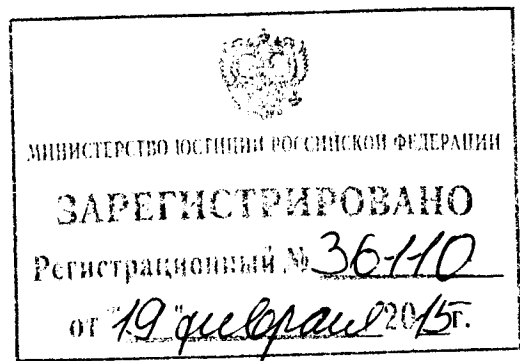 МИНИСТЕРСТВО ЮСТИЦИИ РОССИЙСКОЙ ФЕДЕРАЦИИ
ЗАРЕГИСТРИРОВАНО
Регистрационный № 36110
от "19" февраля 2015г.